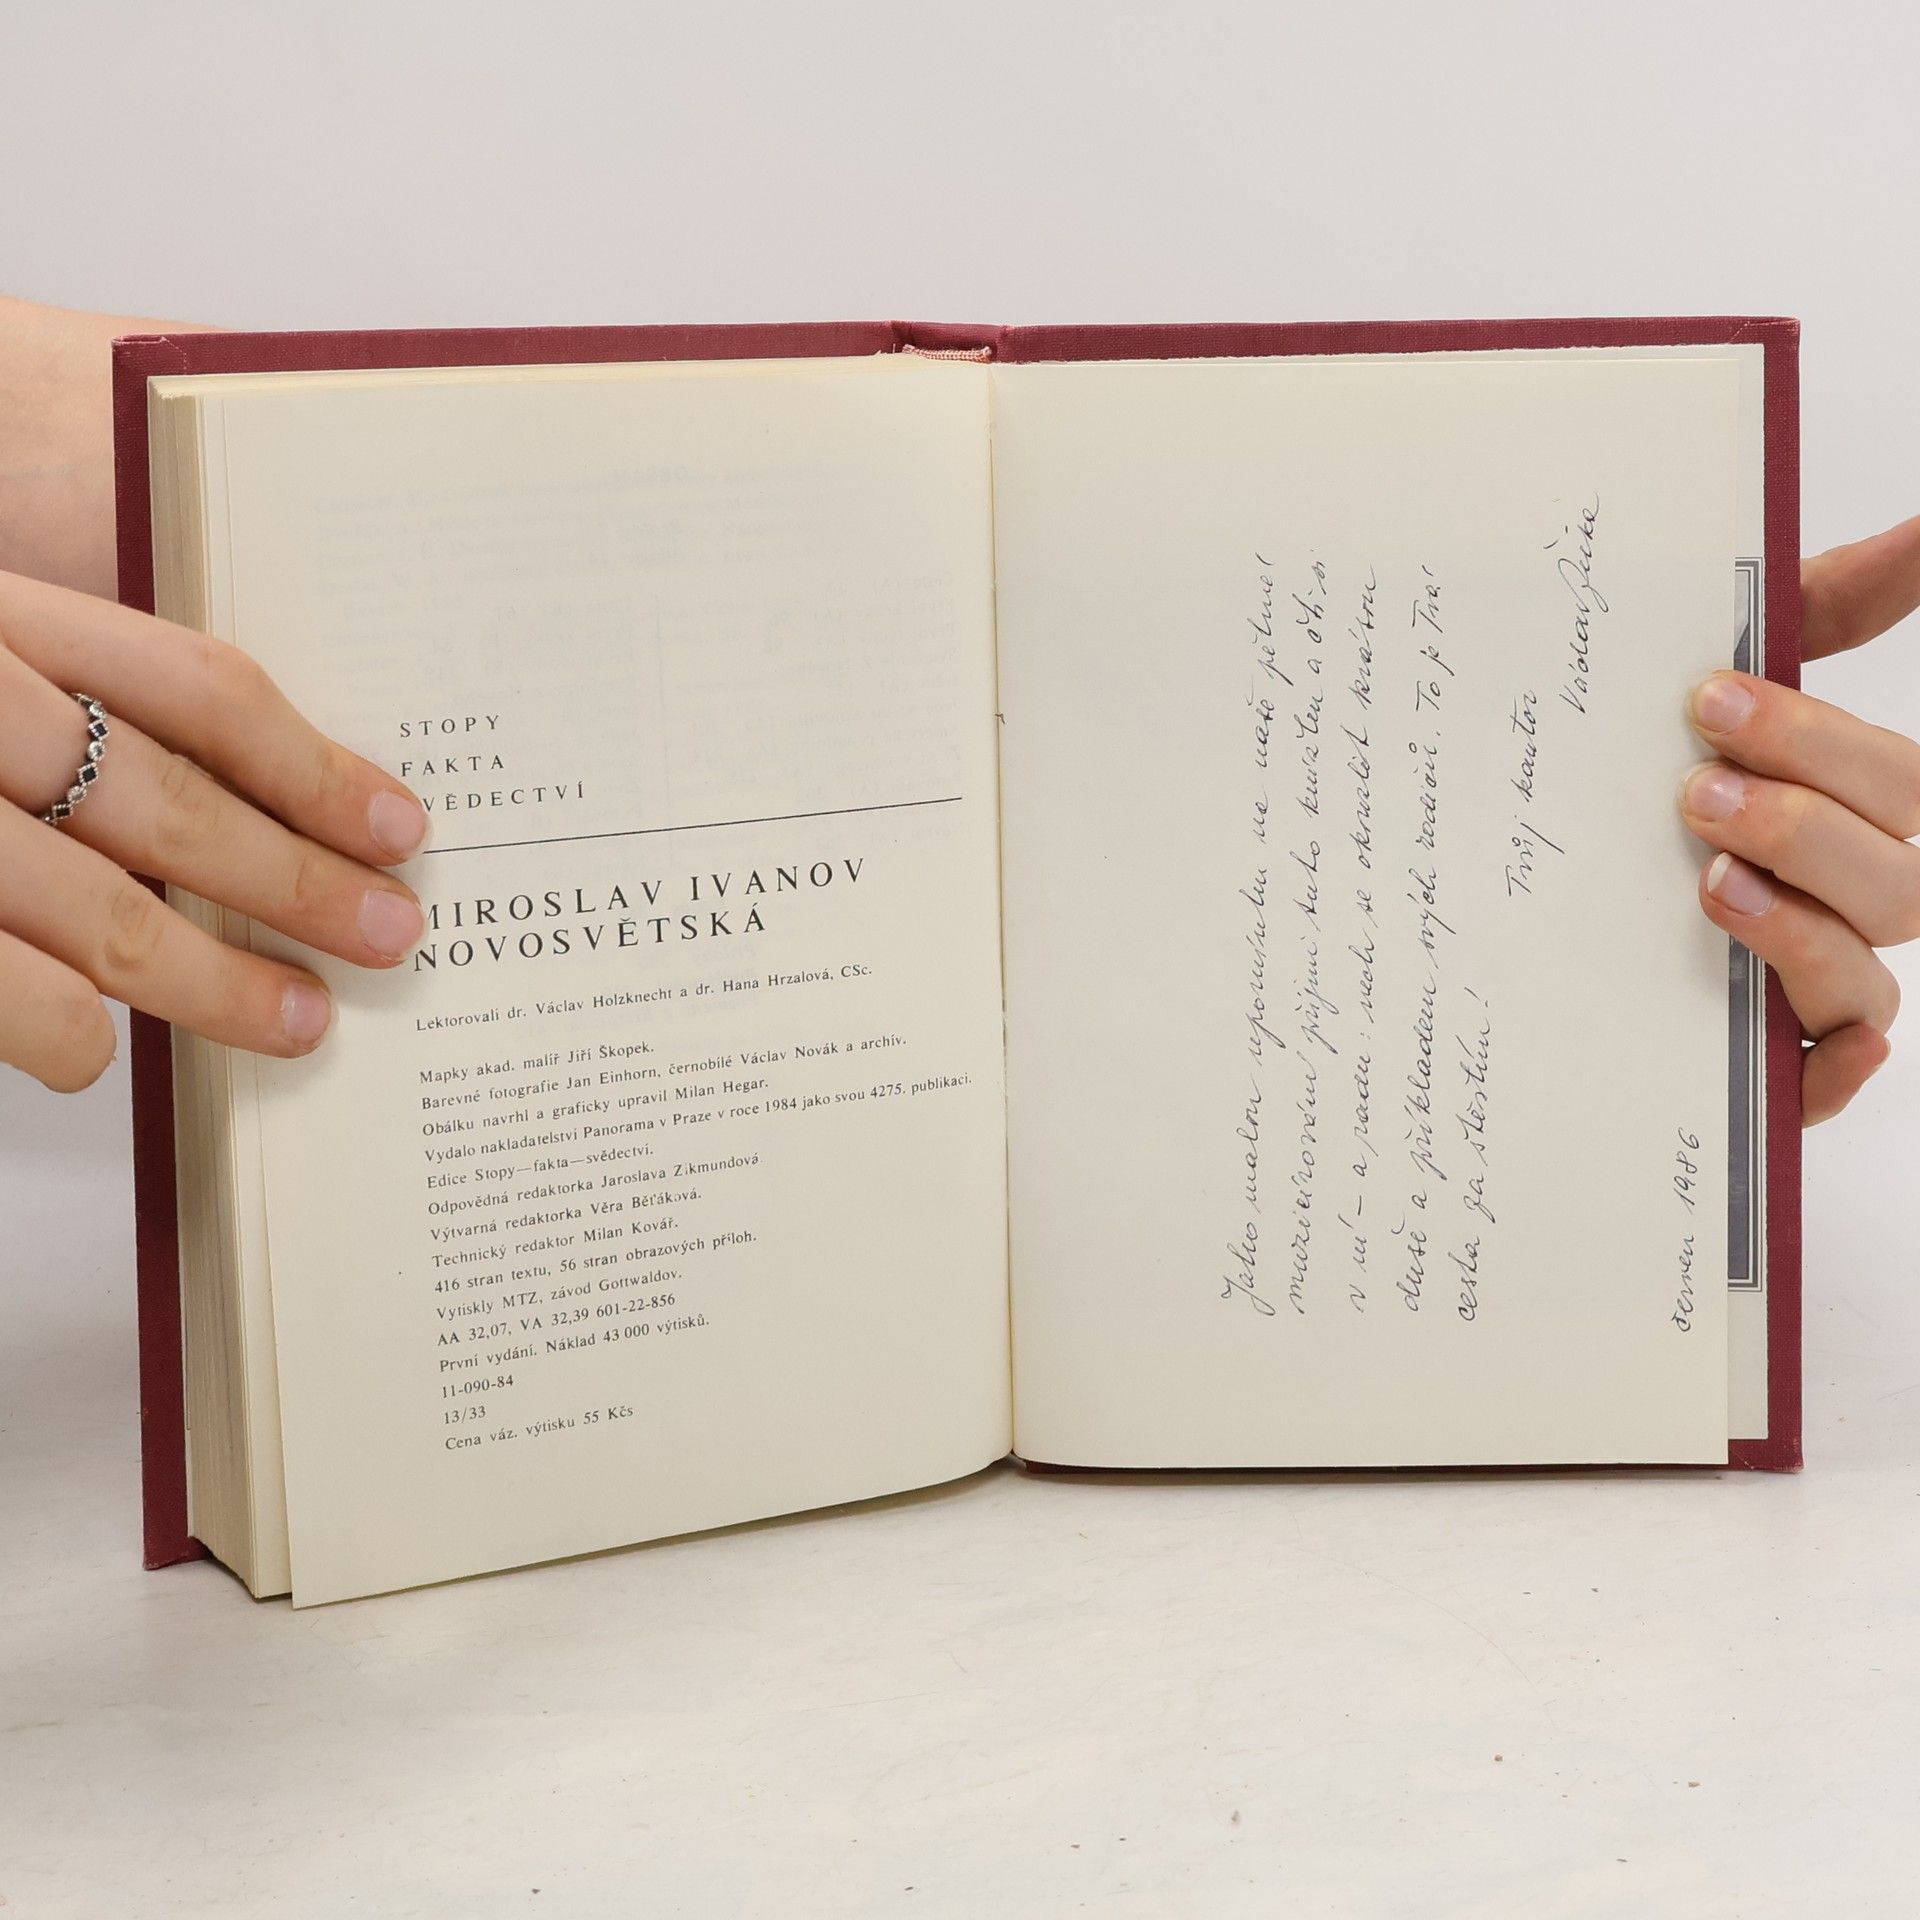 STOPY
FAKTA
VĚDECTVÍ
MIROSLAV IVANOV
NOVOSVĚTSKÁ
Lektorovali dr. Václav Holzknecht a dr. Hana Hrzalová, CSc.
Mapky akad. malíř Jiří Škopek.
Barevné fotografie Jan Einhorn, černobílé Václav Novák a archív.
Obálku navrhl a graficky upravil Milan Hegar.
Vydalo nakladatelství Panorama v Praze v roce 1984 jako svou 4275. publikaci.
Edice Stopy—fakta—svědectví.
Odpovědná redaktorka Jaroslava Zikmundová.
Výtvarná redaktorka Věra Běťáková.
Technický redaktor Milan Kovář.
416 stran textu, 56 stran obrazových příloh.
Vytiskly MTZ, závod Gottwaldov.
AA 32,07, VA 32,39 601-22-856
První vydání. Náklad 43 000 výtisků.
11-090-84
13/33
Cena váz. výtisku 55 Kčs
Jako malou upomínku na naše pětileté
muzicírování přijmi tuto knížku a čti si
v ní — a radu: nech se okouzlit krásou
duše a příkladem svých rodičů. To je Tvá
cesta za štěstím!
Tvůj kantor
Václav
červen 1986